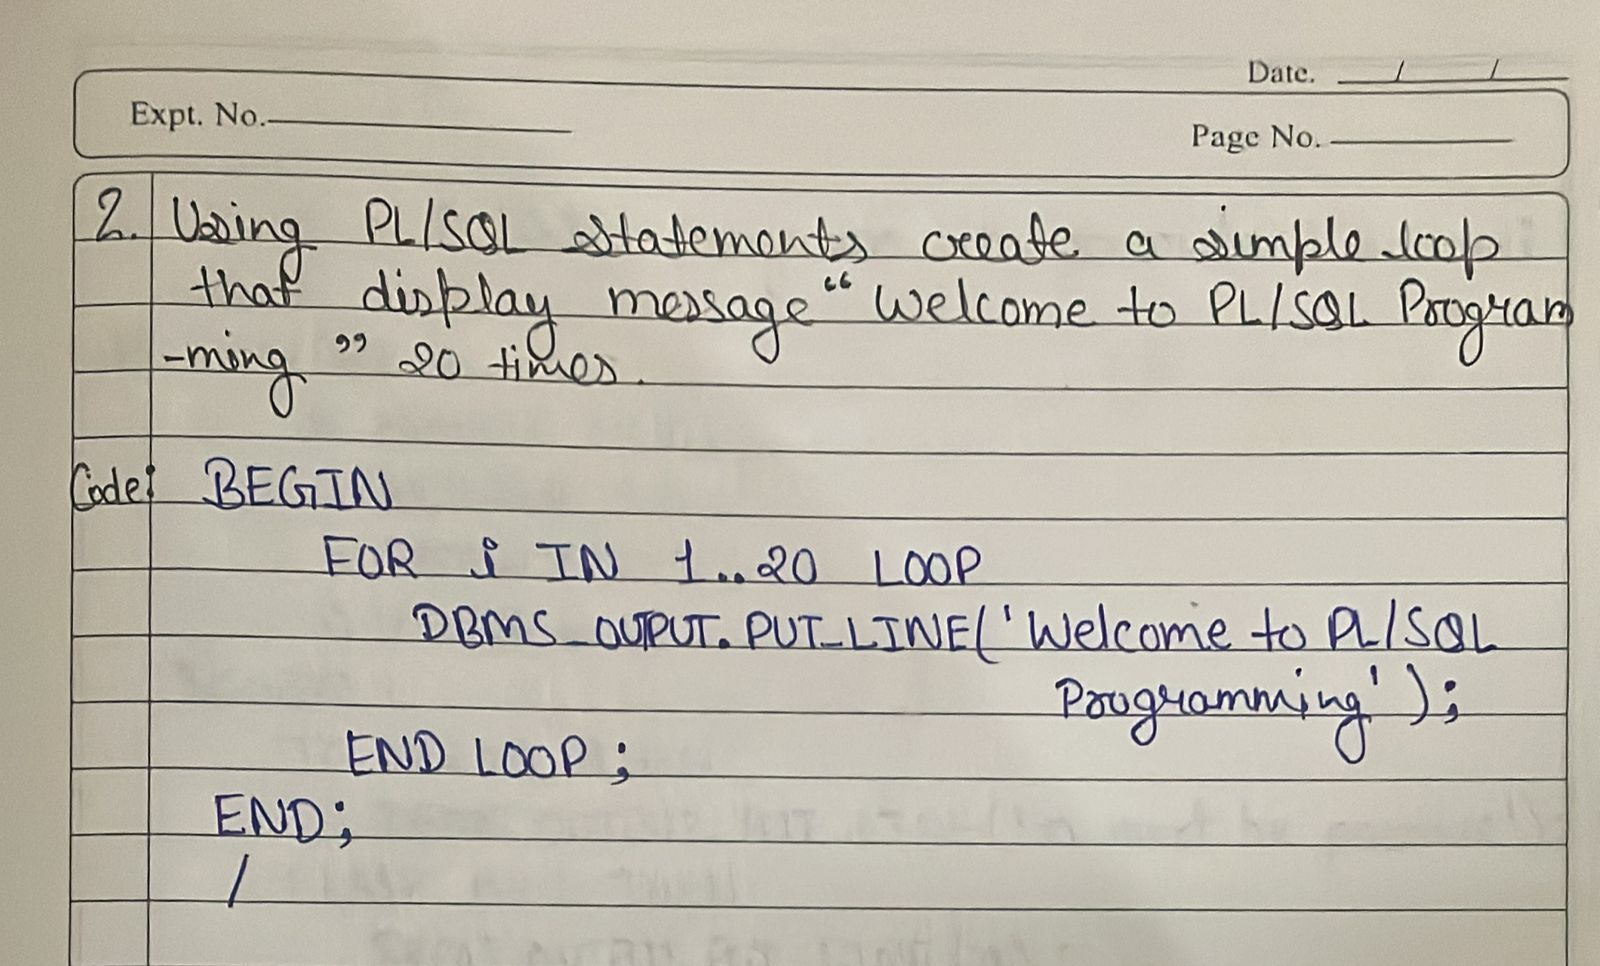 Date. / /
Expt. No.
Page No.
2. Using PL/SQL statements create a simple loop
that display message “ Welcome to PL/SQL Program
-ming ” 20 times.
Code: BEGIN
FOR i IN 1..20 LOOP
DBMS_OUTPUT.PUT_LINE('Welcome to PL/SQL
Programming');
END LOOP;
END;
/